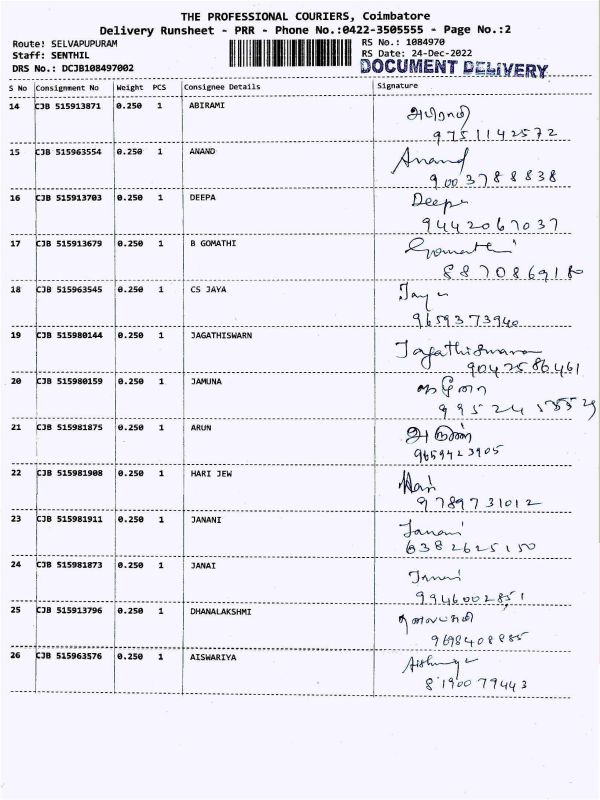 THE PROFESSIONAL COURIERS, Coimbatore
Delivery Runsheet - PRR - Phone No.:0422-3505555 - Page No.:2
Route: SELVAPUPURAM
Staff: SENTHIL
DRS No.: DCJB108497002
RS No.: 1084970
RS Date: 24-Dec-2022
DOCUMENT DELIVERY
S No Consignment No Weight PCS Consignee Details Signature
14 CJB 515913871 0.250 1 ABIRAMI அபிராமி
9751142572
15 CJB 515963554 0.250 1 ANAND Anand
9003788838
16 CJB 515913703 0.250 1 DEEPA Deepa
9442067037
17 CJB 515913679 0.250 1 B GOMATHI Gomathi
8870869180
18 CJB 515963545 0.250 1 CS JAYA Jaya
9659373940
19 CJB 515980144 0.250 1 JAGATHISWARN Jagathiswaran
9047586461
20 CJB 515980159 0.250 1 JAMUNA
21 CJB 515981875 0.250 1 ARUN அருண்
9659423905
22 CJB 515981908 0.250 1 HARI JEW Hari
9789731012
23 CJB 515981911 0.250 1 JANANI Janani
6382625150
24 CJB 515981873 0.250 1 JANAI
9946002851
25 CJB 515913796 0.250 1 DHANALAKSHMI
9698408885
26 CJB 515963576 0.250 1 AISWARIYA
8190079443